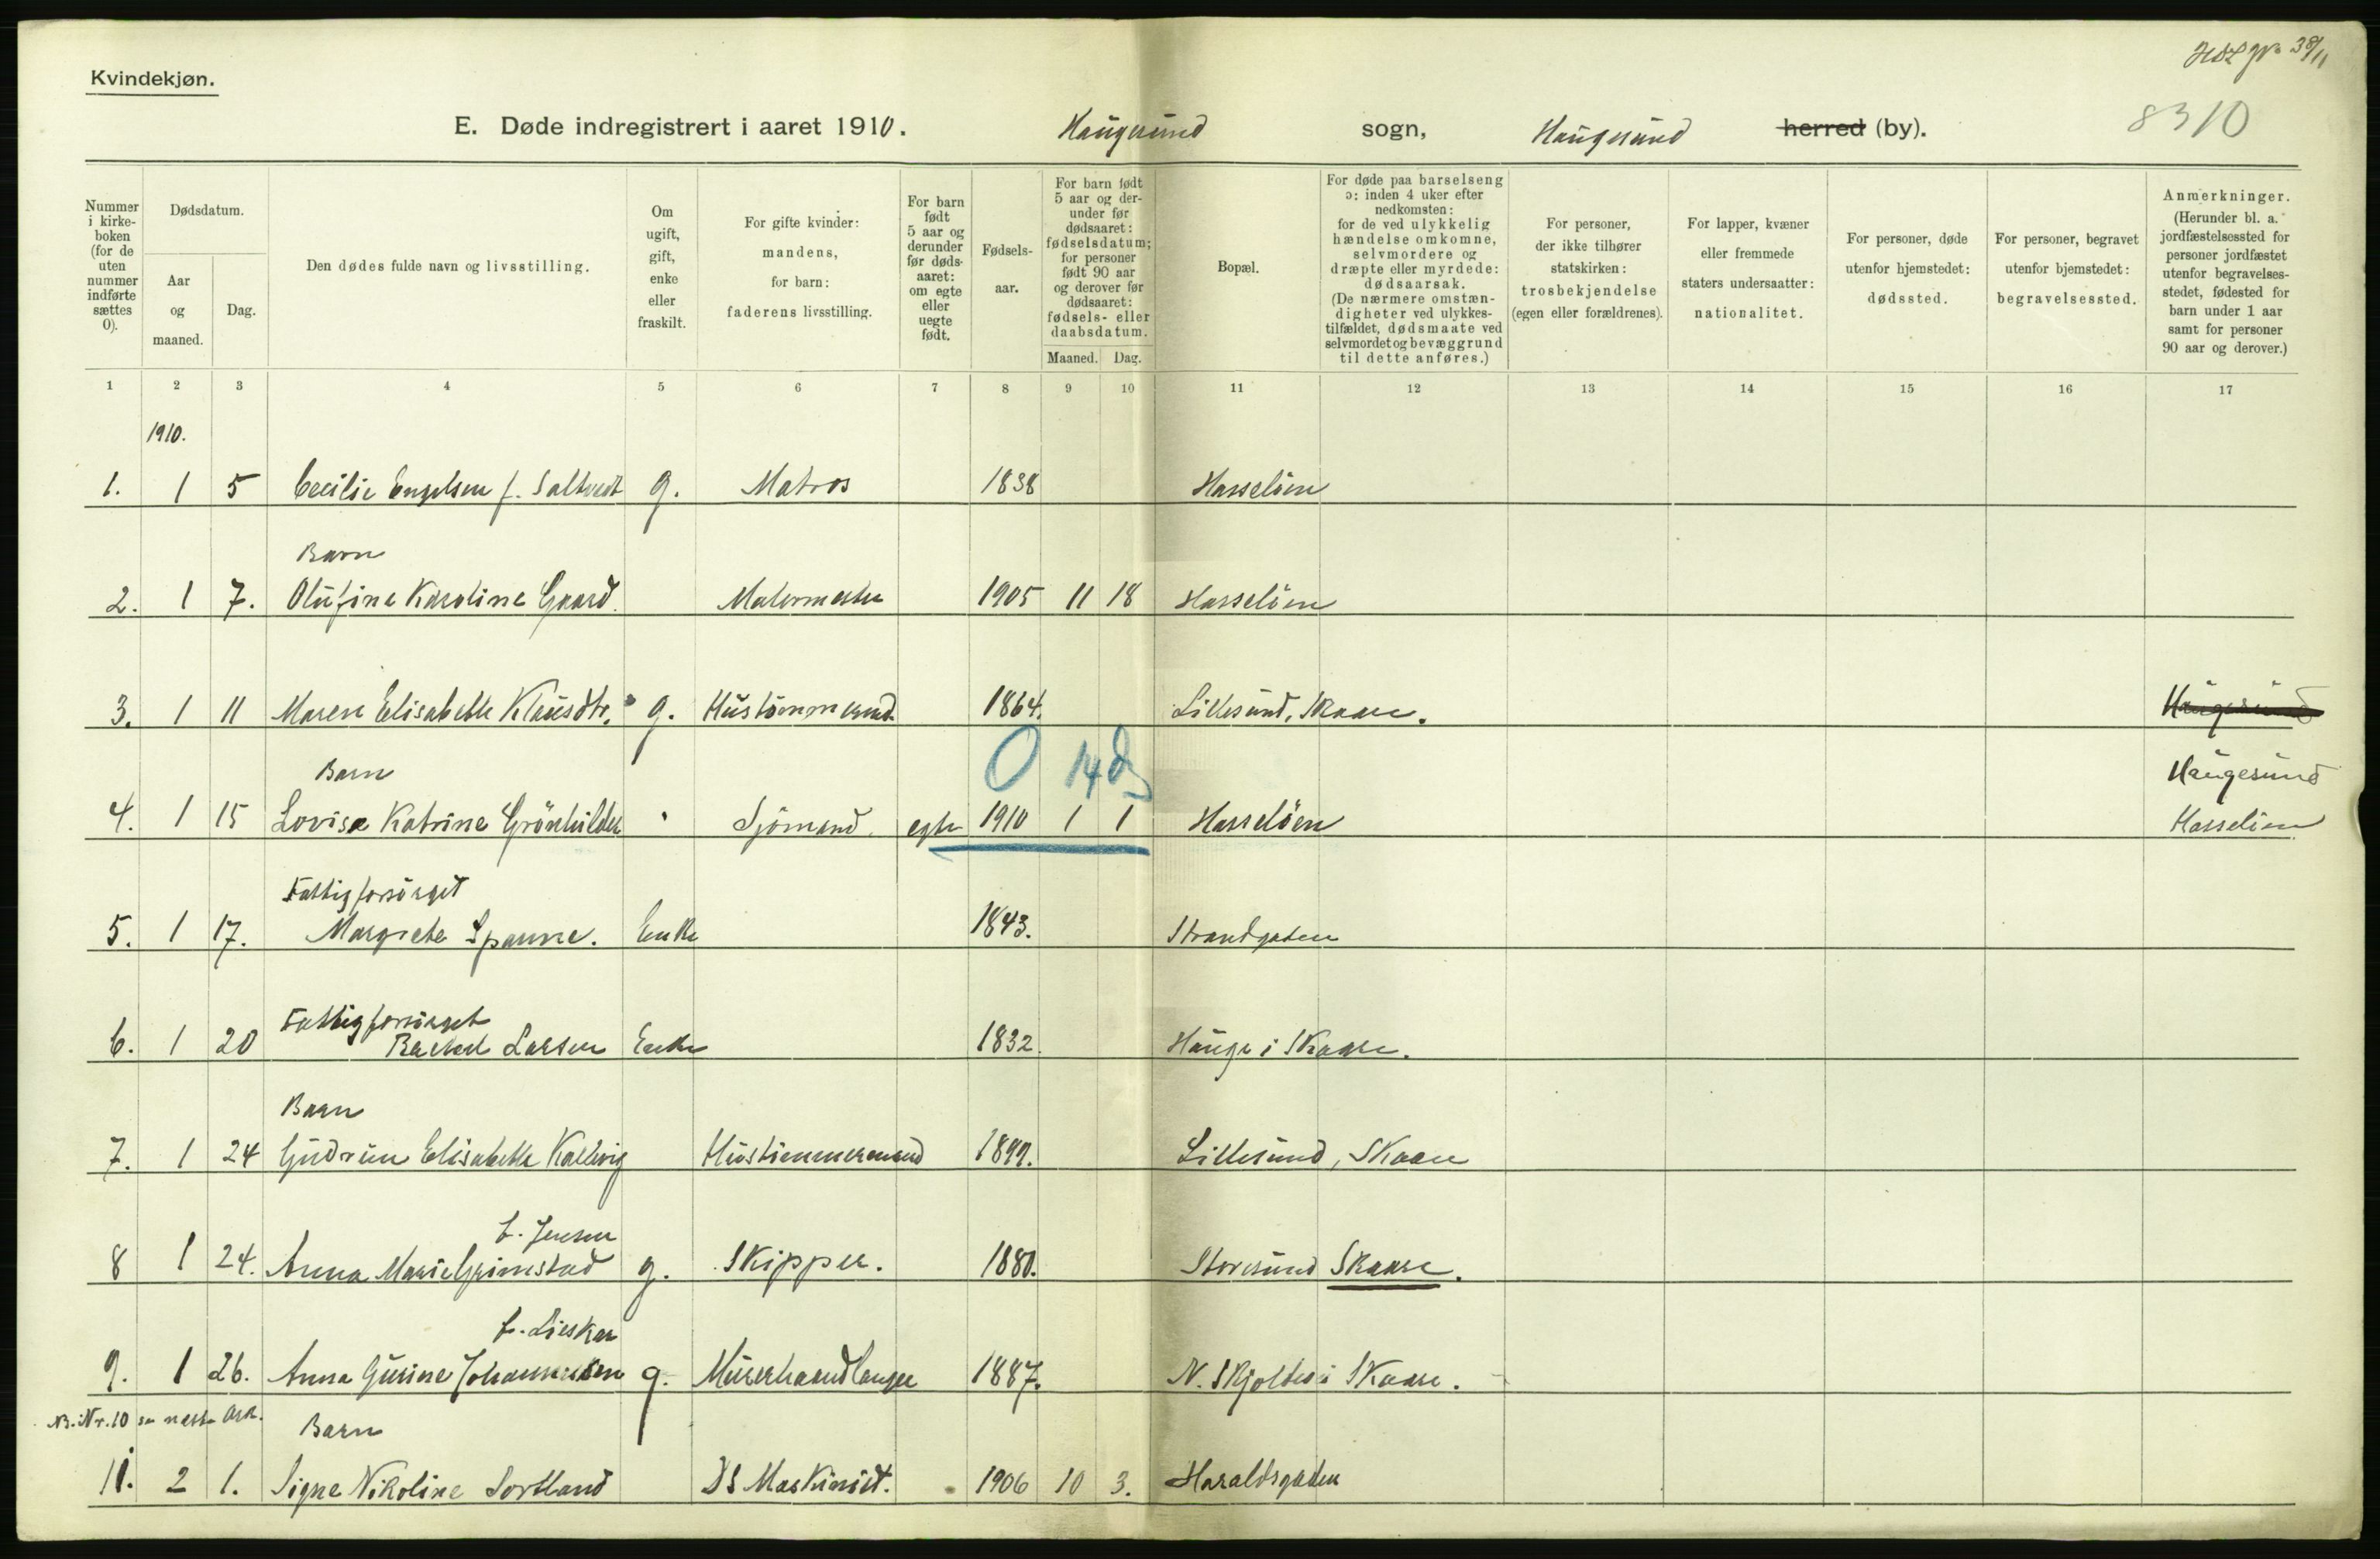 Kvindekjøn.
8310
E. Døde indregistrert i aaret 1910. Haugesund sogn, Haugesund herred (by).
Nummer i kirkeboken (for de uten nummer indførte sættes 0).
Dødsdatum.
Aar og maaned.
Dag.
Den dødes fulde navn og livsstilling.
Om ugift, gift, enke eller fraskilt.
For gifte kvinder: mandens, for barn: faderens livsstilling.
For barn født 5 aar og derunder før dødsaaret: om egte eller uegte født.
Fødselsaar.
For barn født 5 aar og derunder før dødsaaret: fødselsdatum; for personer født 90 aar og derover før dødsaaret: fødsels- eller daabsdatum.
Maaned. Dag.
Bopæl.
For døde paa barselseng ɔ: inden 4 uker efter nedkomsten: for de ved ulykkelig hændelse omkomne, selvmordere og dræpte eller myrdede: dødsaarsak. (De nærmere omstændigheter ved ulykkestilfældet, dødsmaate ved selvmordet og bevæggrund til dette anføres.)
For personer, der ikke tilhører statskirken: trosbekjendelse (egen eller forældrenes).
For lapper, kvæner eller fremmede staters undersaatter: nationalitet.
For personer, døde utenfor hjemstedet: dødssted.
For personer, begravet utenfor bjemstedet: begravelsessted.
Anmerkninger. (Herunder bl. a. jordfæstelsessted for personer jordfæstet utenfor begravelsesstedet, fødested for barn under 1 aar samt for personer 90 aar og derover.)
1 2 3 4 5 6 7 8 9 10 11 12 13 14 15 16 17
1910.
1. 1 5 Cecilie Engelsen f. Saltvedt g. Matros 1838 Hasseløen
Barn
2. 1 7. Olufine Karoline Gaard. Malermester 1905 11 18 Hasseløen
3. 1 11 Maren Elisabeth Klausdtr. g. Hustømmermand 1864. Lillesund, Skaare. Haugesund
0 14 d
Barn Haugesund
4. 1 15 Lovise Katrine Grønhilder Sjømand. egte 1910 1 1 Hasseløen Hasseløen
Fattigforsørget
5. 1 17. Margrete Spanne. Enke 1843. Strandgaten
Fattigforsørget
6. 1 20 Rachel Larsen Enke 1832. Hauge i Skaare.
Barn
7. 1 24 Gudrun Elisabeth Kallevig Hustømmermand 1899. Lillesund, Skaare
f. Jensen
8 1 24. Anna Marie Grimstad g. Skipper. 1880. Storesund Skaare.
f. Lieskar
9. 1 26. Anna Gurine Johannessen g. Murerhandlanger 1887. N. Skjoldes i Skaare.
NB. Nr. 10 se neste Ark.
Barn
11. 2 1. Signe Nikoline Sortland DS Maskinist. 1906 10 3. Haraldsgaden